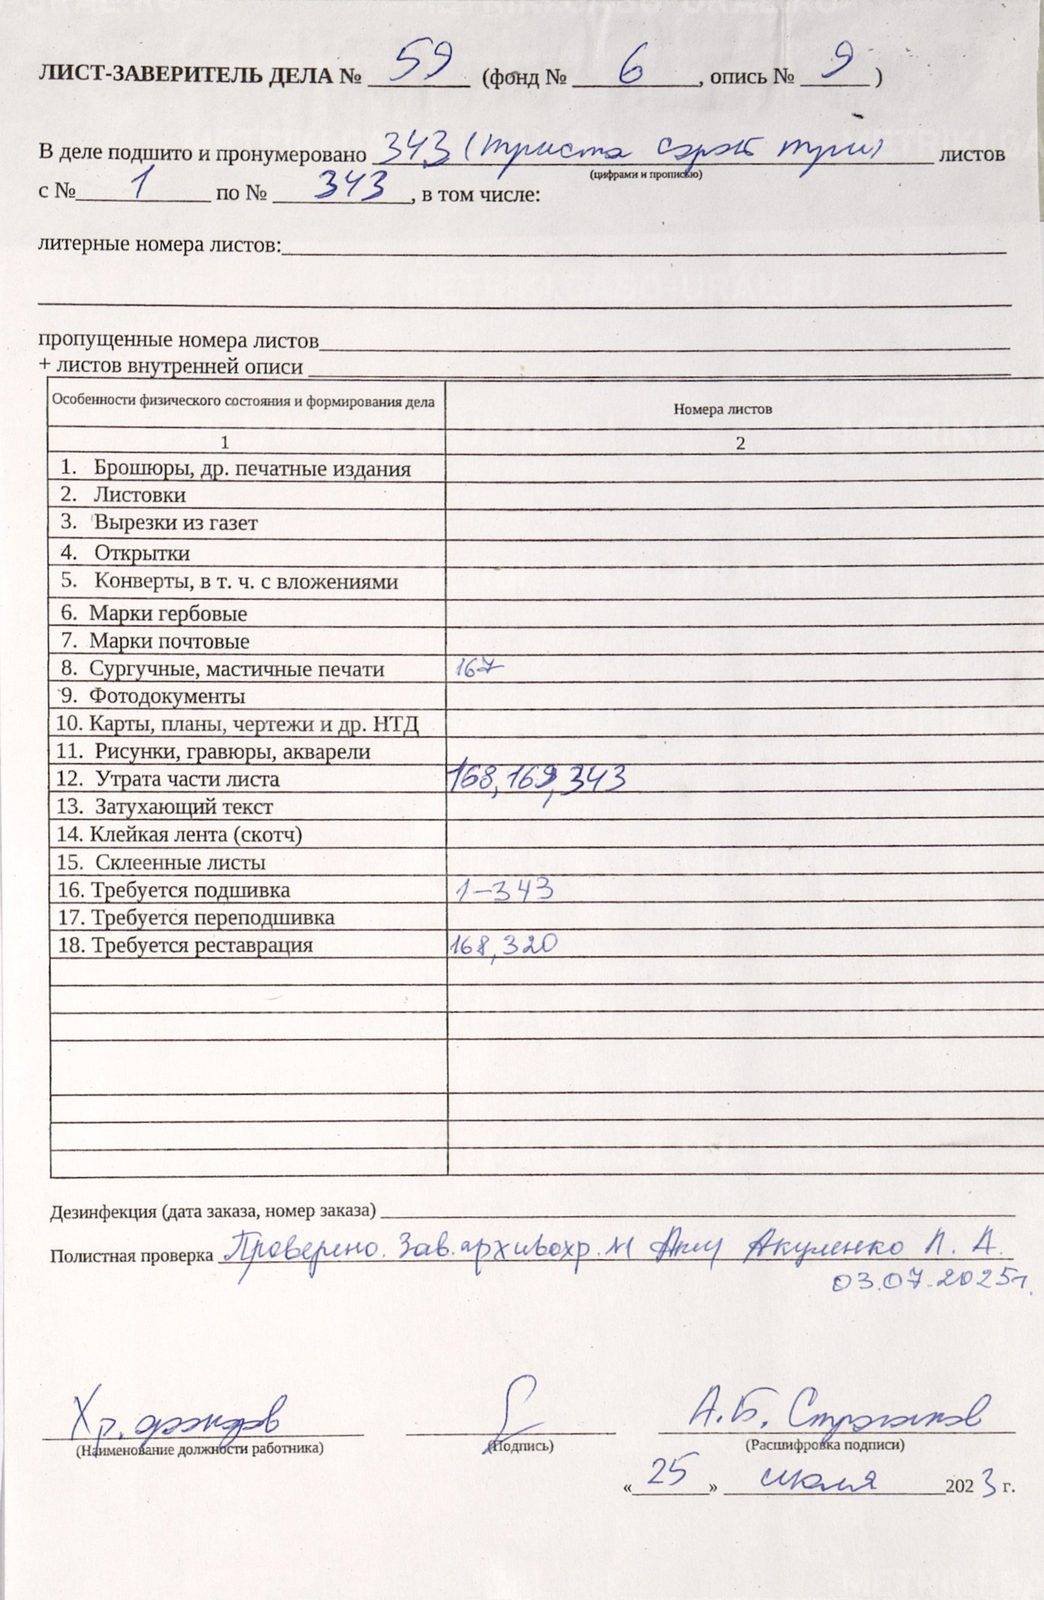 ЛИСТ-ЗАВЕРИТЕЛЬ ДЕЛА № 59 (фонд № 6, опись № 9)
В деле подшито и пронумеровано 343 (триста сорок три) листов
(цифрами и прописью)
с № 1 по № 343, в том числе:
литерные номера листов:
пропущенные номера листов
+ листов внутренней описи
Особенности физического состояния и формирования дела Номера листов
1 2
1. Брошюры, др. печатные издания
2. Листовки
3. Вырезки из газет
4. Открытки
5. Конверты, в т. ч. с вложениями
6. Марки гербовые
7. Марки почтовые
8. Сургучные, мастичные печати 167
9. Фотодокументы
10. Карты, планы, чертежи и др. НТД
11. Рисунки, гравюры, акварели
12. Утрата части листа 168, 169, 343
13. Затухающий текст
14. Клейкая лента (скотч)
15. Склеенные листы
16. Требуется подшивка 1-343
17. Требуется переподшивка
18. Требуется реставрация 168, 320
Дезинфекция (дата заказа, номер заказа)
Полистная проверка Проверено. Зав. архивохр. Акуленко
03.07.2025г.
Хр. фондов А.Б.
(Наименование должности работника) (Подпись) (Расшифровка подписи)
«25» июля 2023 г.